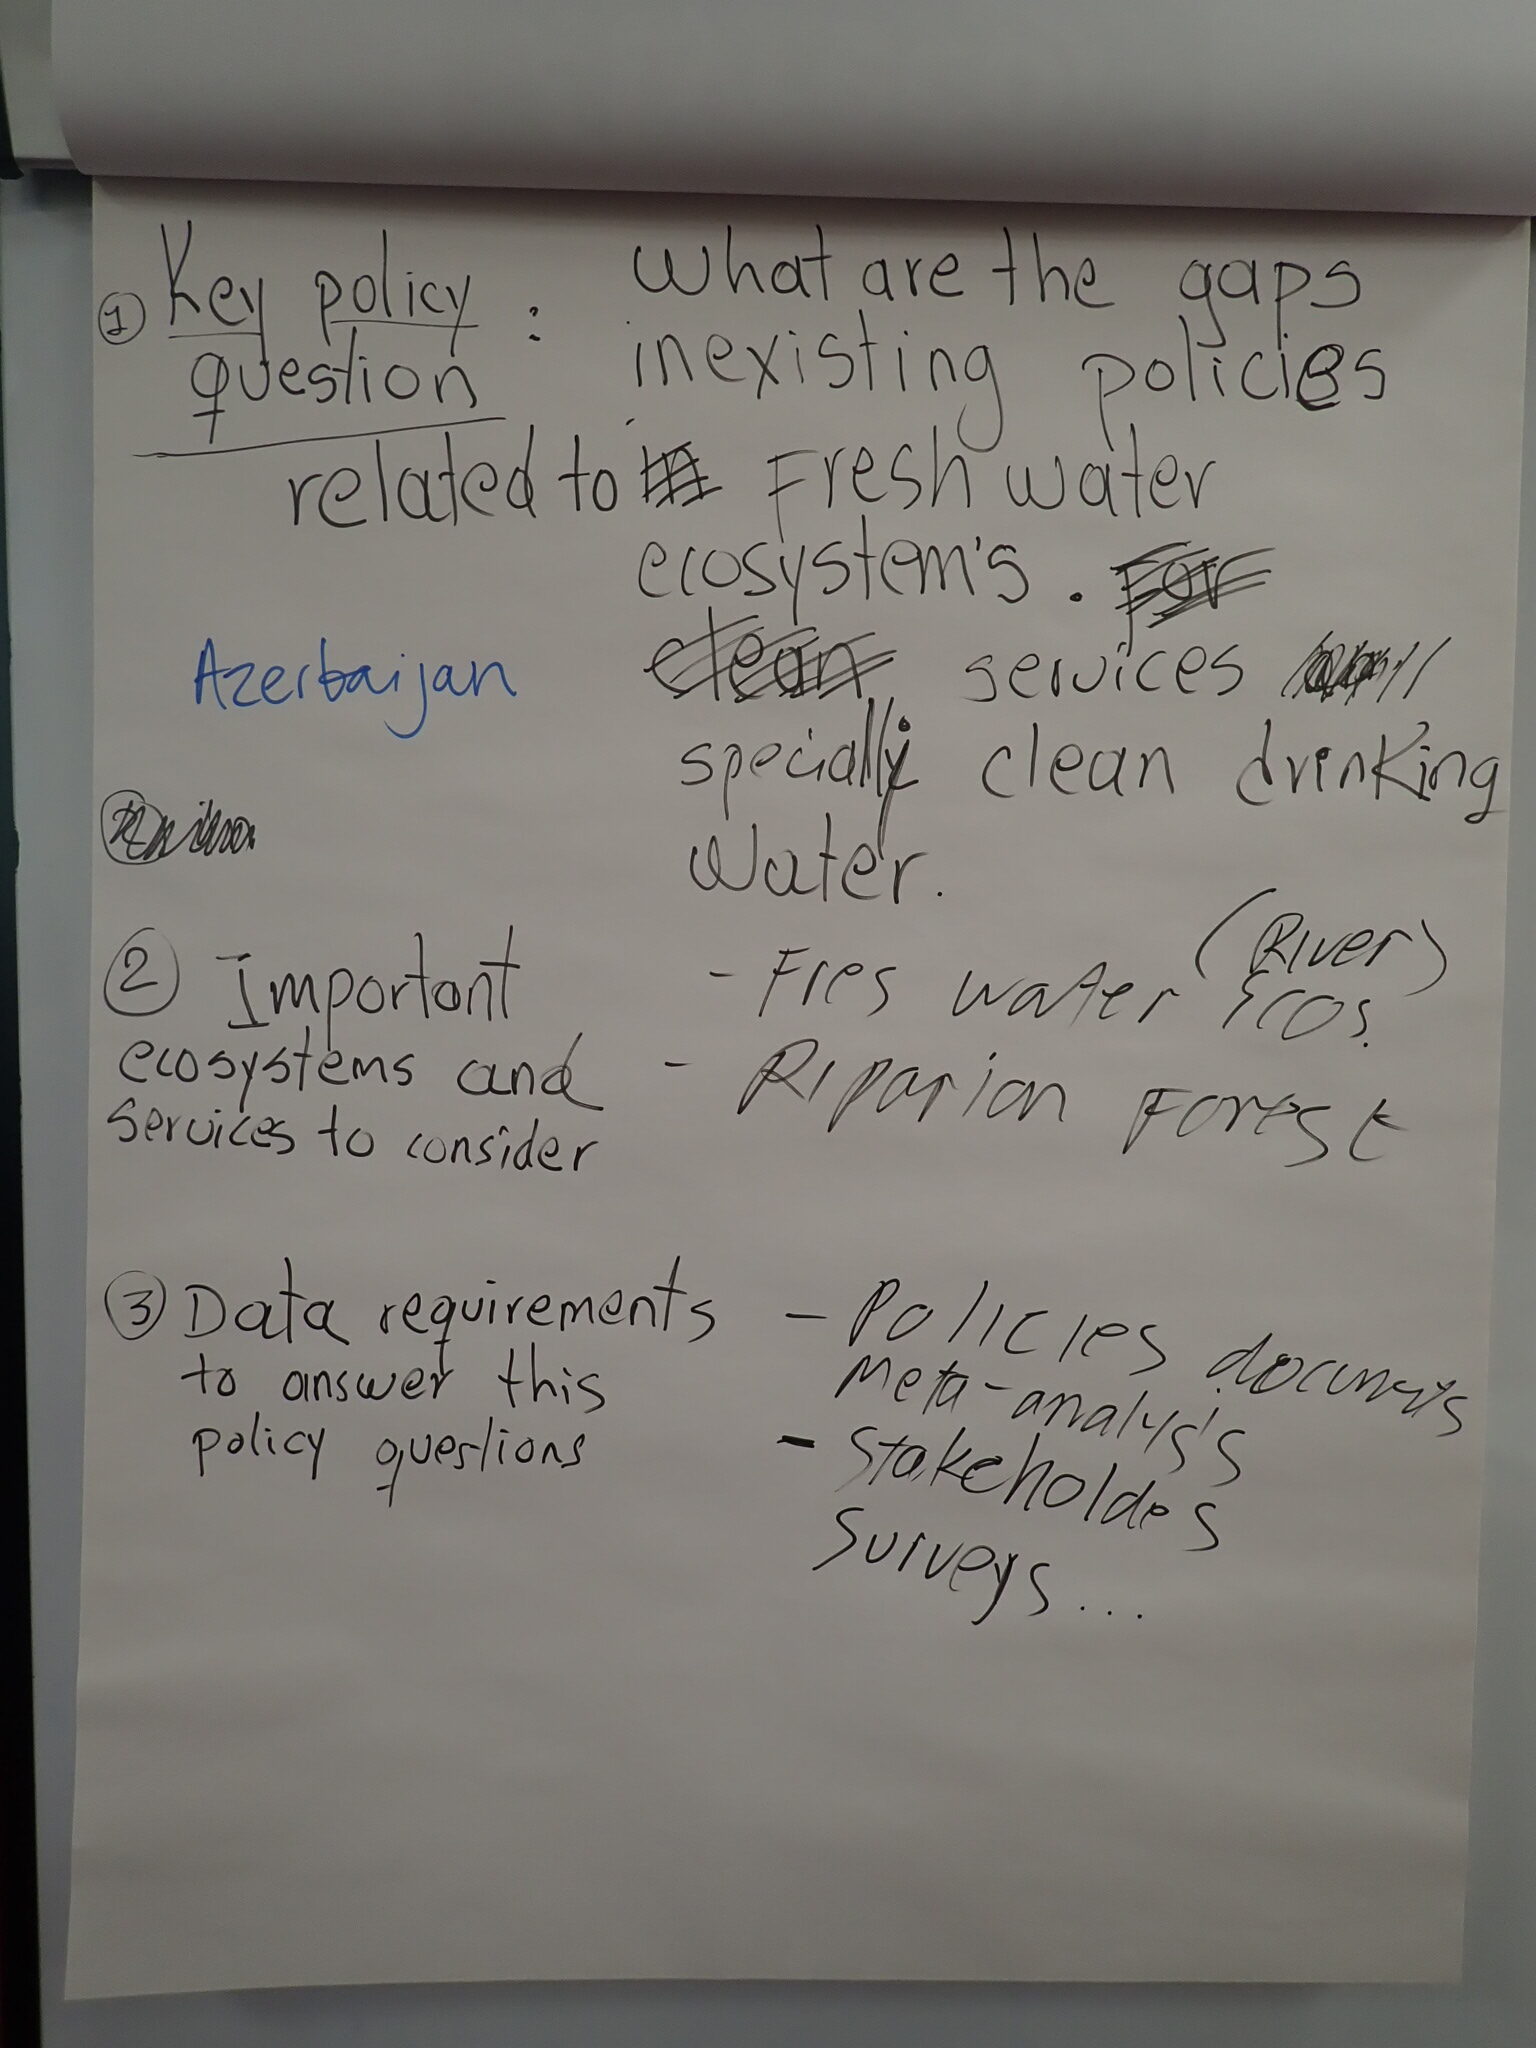 ① Key policy question : What are the gaps
inexisting policies
related to Fresh water
ecosystem's.
services
specially clean drinking
Water.
Azerbaijan
② Important
ecosystems and
services to consider
- Fres water (River) Ecos.
- Riparian Forest
③ Data requirements
to answer this
policy questions
- Policies documents
Meta-analysis
- Stakeholdes
Surveys...